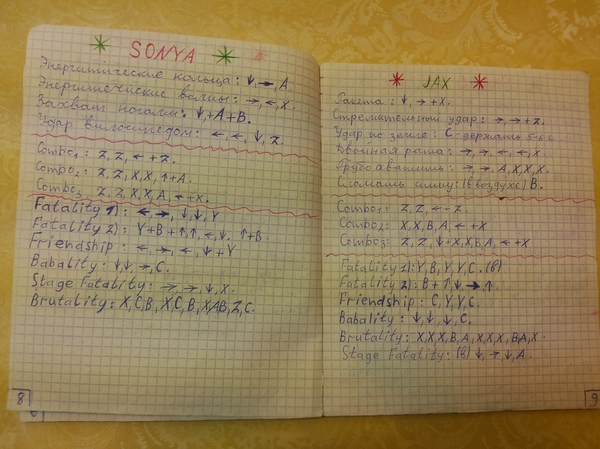 SONYA
Энергитические кольца: ↓, →, A
Энергитические волны: →, ←, X.
Захват ногами: ↓, +A+B.
Удар вилосипедом: ←, ←, ↓, Z
Combo1: Z, Z, ← + Z.
Combo2: Z, Z, X, X, ↑+A.
Combo3 Z, Z, X, X, A, ← + X.
Fatality 1): ←, →, ↓, ↓, Y
Fatality 2): Y+B + ↑, ↑, ←, ↓. ↑+B
Friendship: ←, →, ←, ↓+Y
Babality: ↓, ↓, →, C.
Stage Fatality: →, →, ↓, X.
Brutality: X, C, B, X, C, B, X, A, B, Z, C.
8
JAX
Ракета: ↓, → + X.
Стремительный удар: →, → + Z.
Удар по земле: C - держать 5-6 с.
Двойная рата: →, →, ←, ←, X.
: →, →, A, X, X, X.
Сломать спину: (в воздухе) B.
Combo1: Z, Z, ← + Z.
Combo2: X, X, B, A, ← + X
Combo3: Z, Z, ↓ + X, X, B, A, ← + X
Fatality 1): Y, B, Y, Y, C. (в)
Fatality 2): B + ↑, ↓, → ↑.
Friendship: C, Y, Y, C.
Babality: ↓, ↓, ↓, C.
Brutality: X, X, X, B, A, X, X, X, B, A, X.
Stage Fatality: (в) ↓, →, ↓, A.
9